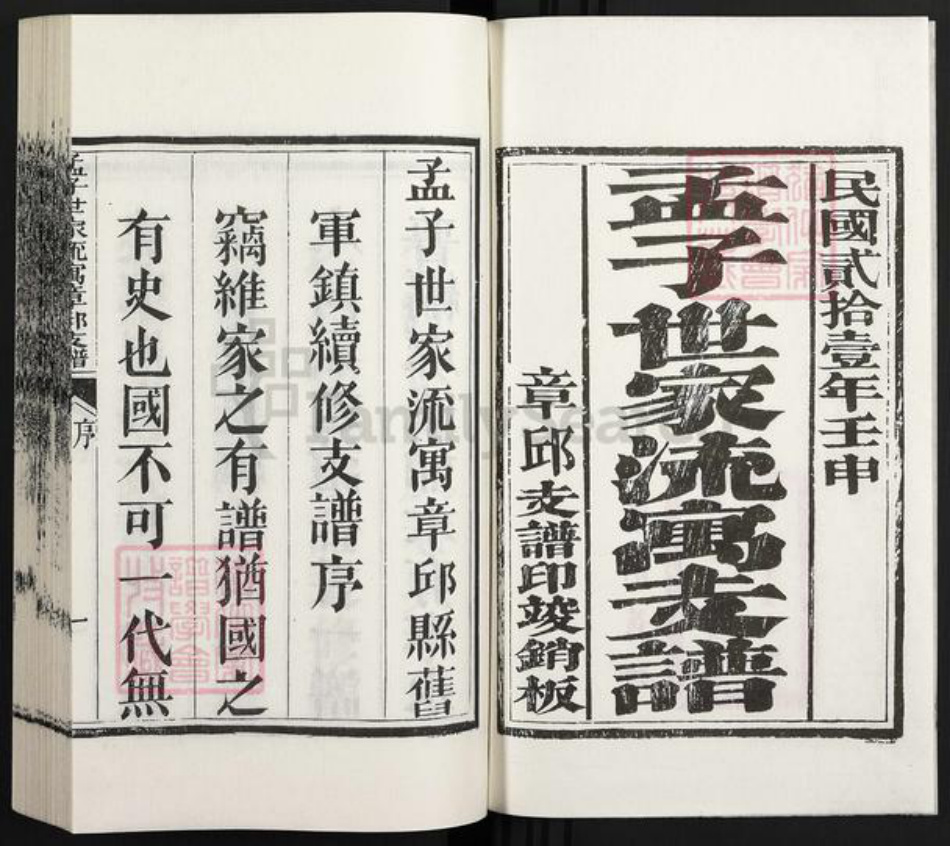 民國貳拾壹年壬申
孟子世家流寓支譜
章邱支譜印竣銷板
孟子世家流寓章邱縣舊
軍鎮續修支譜序
竊維家之有譜猶國之
有史也國不可一代無
孟子世家流寓章邱支譜
序
一
FamilySearch